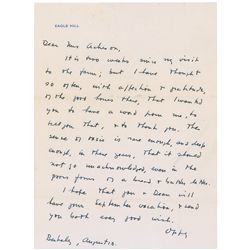 EAGLE HILL
Dear Mrs Acheson,
It is two weeks since my visit
to the farm; but I have thought
so often, with affection & gratitude,
of the good times there, that I wanted
you to have a word from me, to
tell you that, & to thank you. The
sense of is rare enough, and deep
enough, in these years, that it should
not go unacknowledged, even in the
poor form of a letter.
I hope that you & Dean will
have your September vacation, & send
you both every good wish.
Berkeley, August